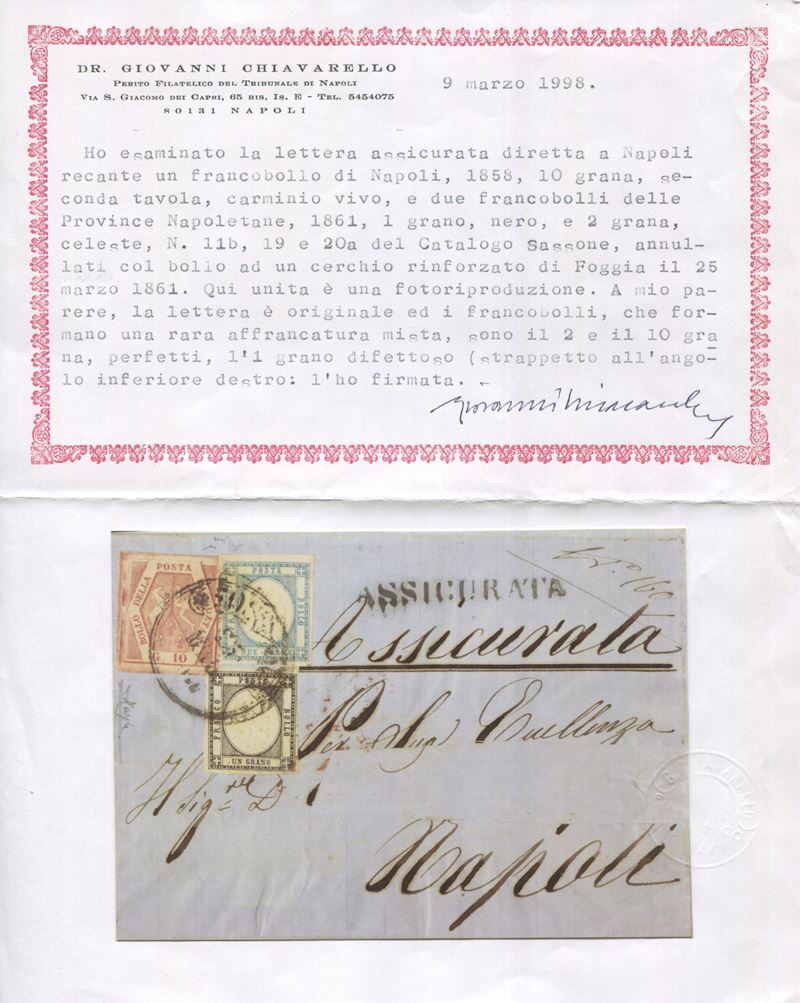 DR. GIOVANNI CHIAVARELLO
PERITO FILATELICO DEL TRIBUNALE DI NAPOLI
VIA S. GIACOMO DEI CAPRI, 65 BIS, IS. E - TEL. 5454075
80131 NAPOLI
9 marzo 1998.
Ho esaminato la lettera assicurata diretta a Napoli
recante un francobollo di Napoli, 1858, 10 grana, se-
conda tavola, carminio vivo, e due francobolli delle
Province Napoletane, 1861, 1 grano, nero, e 2 grana,
celeste, N. 11b, 19 e 20a del Catalogo Sassone, annul-
lati col bollo ad un cerchio rinforzato di Foggia il 25
marzo 1861. Qui unita è una fotoriproduzione. A mio pa-
rere, la lettera è originale ed i francobolli, che for-
mano una rara affrancatura mista, sono il 2 e il 10 gra
na, perfetti, l'1 grano difettoso (strappetto all'ango-
lo inferiore destro: l'ho firmata. -
BOLLO DELLA POSTA
G. 10
POSTE
BOLLO
DUE GRANA
ASSICURATA
Assicurata
POSTE
FRANCO
BOLLO
UN GRANO
Per Sua Eccellenza
Il Sig.re D.
Napoli